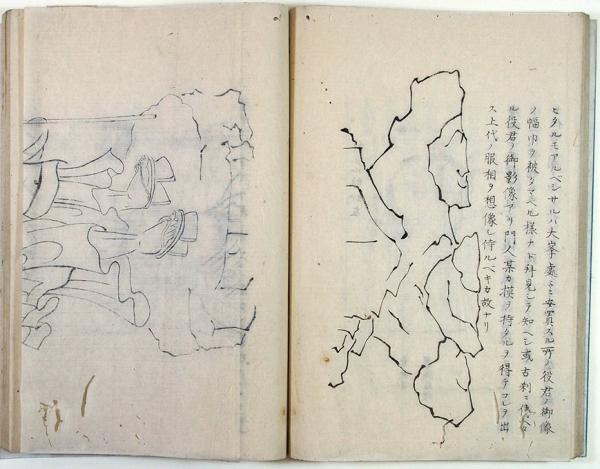 ヒタルモアルベシサルハ大峯處ニ安置スル所ノ役君ノ御像
ノ幅巾ヲ被タマヘル様ナド拜見シテ知ヘシ或古刹ニ
ル役君ノ御影像アリ門人某カ模ヲ持タルヲ得テコレヲ出
ス上代ノ服相ヲ想像シ侍ルベキカ故ナリ